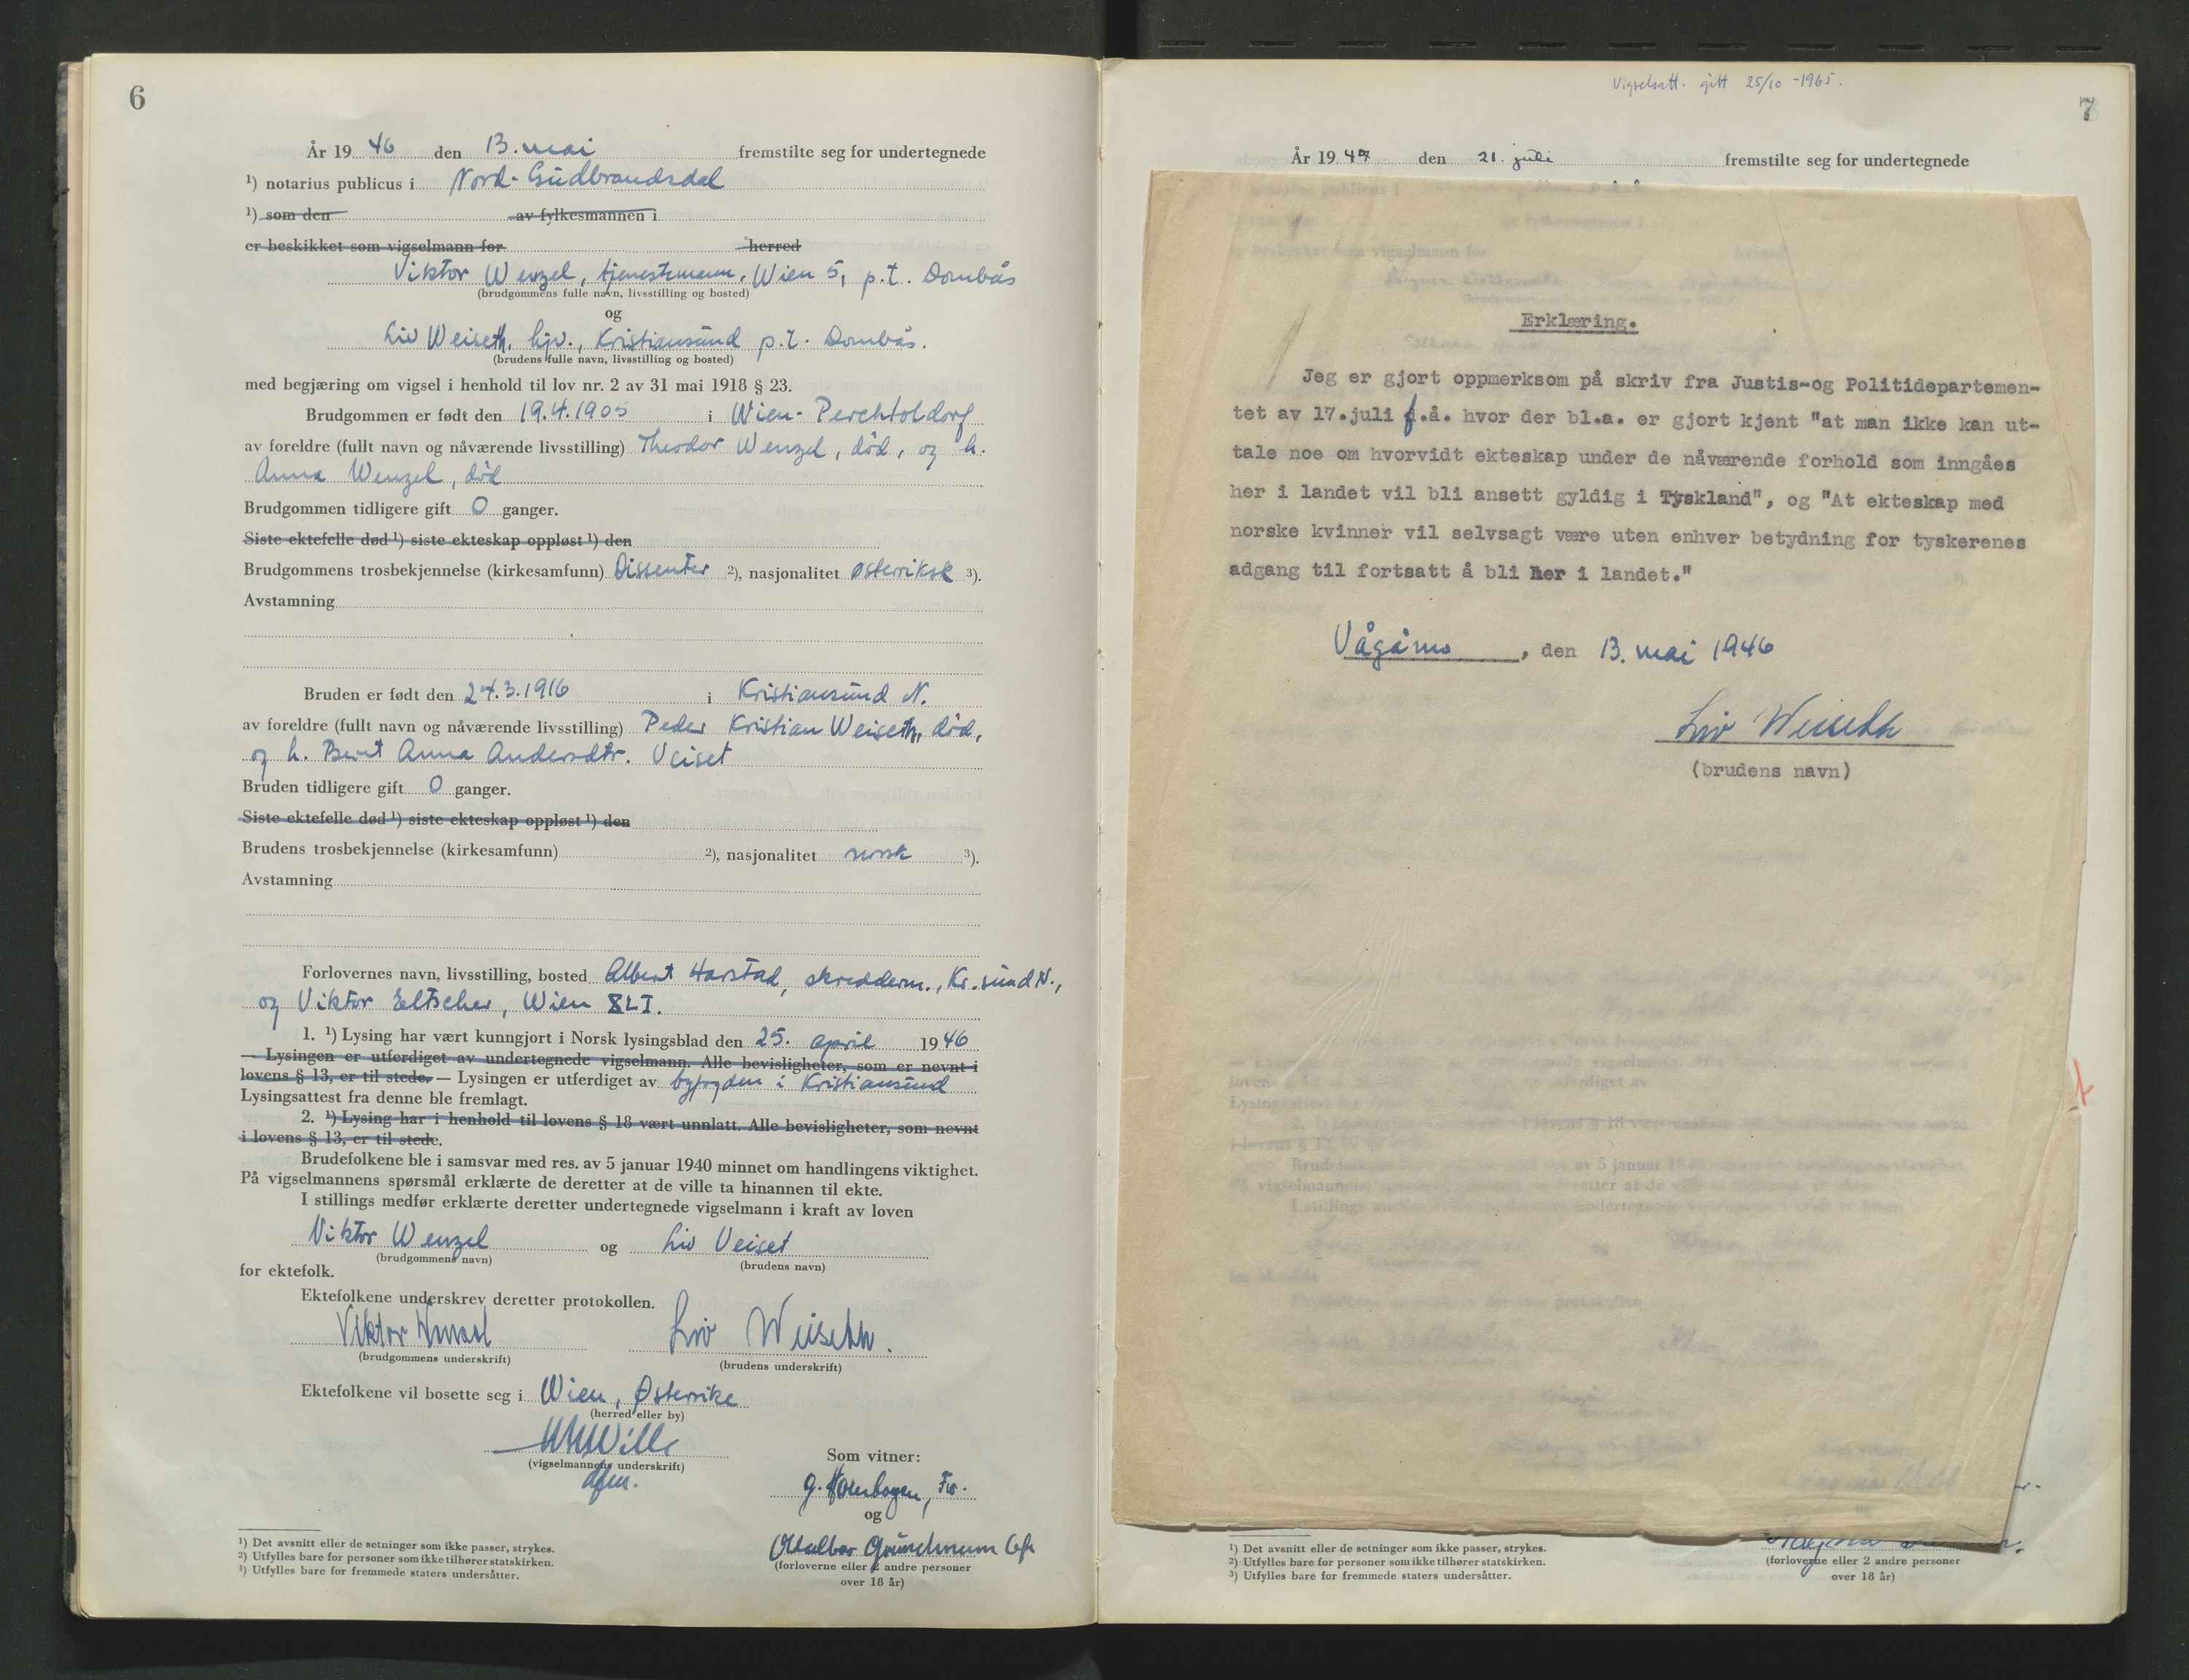 6
År 19 46 den 13. mai fremstilte seg for undertegnede
¹) notarius publicus i Nord-Gudbrandsdal
¹) som den av fylkesmannen i
er beskikket som vigselmann for herred
Viktor Wenzel, tjenestemann, Wien 5, p.t. Dombås
(brudgommens fulle navn, livsstilling og bosted)
og
Liv Weiseth, hjv., Kristiansund p.t. Dombås.
(brudens fulle navn, livsstilling og bosted)
med begjæring om vigsel i henhold til lov nr. 2 av 31 mai 1918 § 23.
Brudgommen er født den 19.4.1905 i Wien-Perchtoldorf
av foreldre (fullt navn og nåværende livsstilling) Theodor Wenzel, død, og h.
Anna Wenzel, død
Brudgommen tidligere gift 0 ganger.
Siste ektefelle død ¹) siste ekteskap oppløst ¹) den
Brudgommens trosbekjennelse (kirkesamfunn) Dissenter ²), nasjonalitet østerriksk ³).
Avstamning
Bruden er født den 24.3.1916 i Kristiansund N.
av foreldre (fullt navn og nåværende livsstilling) Peder Kristian Weiseth, død,
og h. Berit Anna Andersdtr. Veiset
Bruden tidligere gift 0 ganger.
Siste ektefelle død ¹) siste ekteskap oppløst ¹) den
Brudens trosbekjennelse (kirkesamfunn) ²), nasjonalitet norsk ³).
Avstamning
Forlovernes navn, livsstilling, bosted Albert Harstad, skredderm., Kr.sund N.,
og Viktor Eltscher, Wien XLI.
1. ¹) Lysing har vært kunngjort i Norsk lysingsblad den 25. april 1946
— Lysingen er utferdiget av undertegnede vigselmann. Alle bevisligheter, som er nevnt i
lovens § 13, er til stede. — Lysingen er utferdiget av byfogden i Kristiansund
Lysingsattest fra denne ble fremlagt.
2. ¹) Lysing har i henhold til lovens § 18 vært unnlatt. Alle bevisligheter, som nevnt
i lovens § 13, er til stede.
Brudefolkene ble i samsvar med res. av 5 januar 1940 minnet om handlingens viktighet.
På vigselmannens spørsmål erklærte de deretter at de ville ta hinannen til ekte.
I stillings medfør erklærte deretter undertegnede vigselmann i kraft av loven
Viktor Wenzel og Liv Veiset
(brudgommens navn) (brudens navn)
for ektefolk.
Ektefolkene underskrev deretter protokollen.
Viktor Wenzel Liv Weiseth.
(brudgommens underskrift) (brudens underskrift)
Ektefolkene vil bosette seg i Wien, Østerrike
(herred eller by)
(vigselmannens underskrift)
Som vitner:
og
(forloverne eller 2 andre personer
over 18 år)
¹) Det avsnitt eller de setninger som ikke passer, strykes.
²) Utfylles bare for personer som ikke tilhører statskirken.
³) Utfylles bare for fremmede staters undersåtter.
Vigselsatt. gitt 25/10 -1965.
7
År 1947 den 21. juli fremstilte seg for undertegnede
Erklæring.
Jeg er gjort oppmerksom på skriv fra Justis-og Politidepartemen-
tet av 17.juli f.å. hvor der bl.a. er gjort kjent "at man ikke kan ut-
tale noe om hvorvidt ekteskap under de nåværende forhold som inngåes
her i landet vil bli ansett gyldig i Tyskland", og "At ekteskap med
norske kvinner vil selvsagt være uten enhver betydning for tyskerenes
adgang til fortsatt å bli her i landet."
Vågåmo, den 13. mai 1946
Liv Weiseth
(brudens navn)
¹) Det avsnitt eller de setninger som ikke passer, strykes.
²) Utfylles bare for personer som ikke tilhører statskirken.
³) Utfylles bare for fremmede staters undersåtter.
(forloverne eller 2 andre personer
over 18 år)